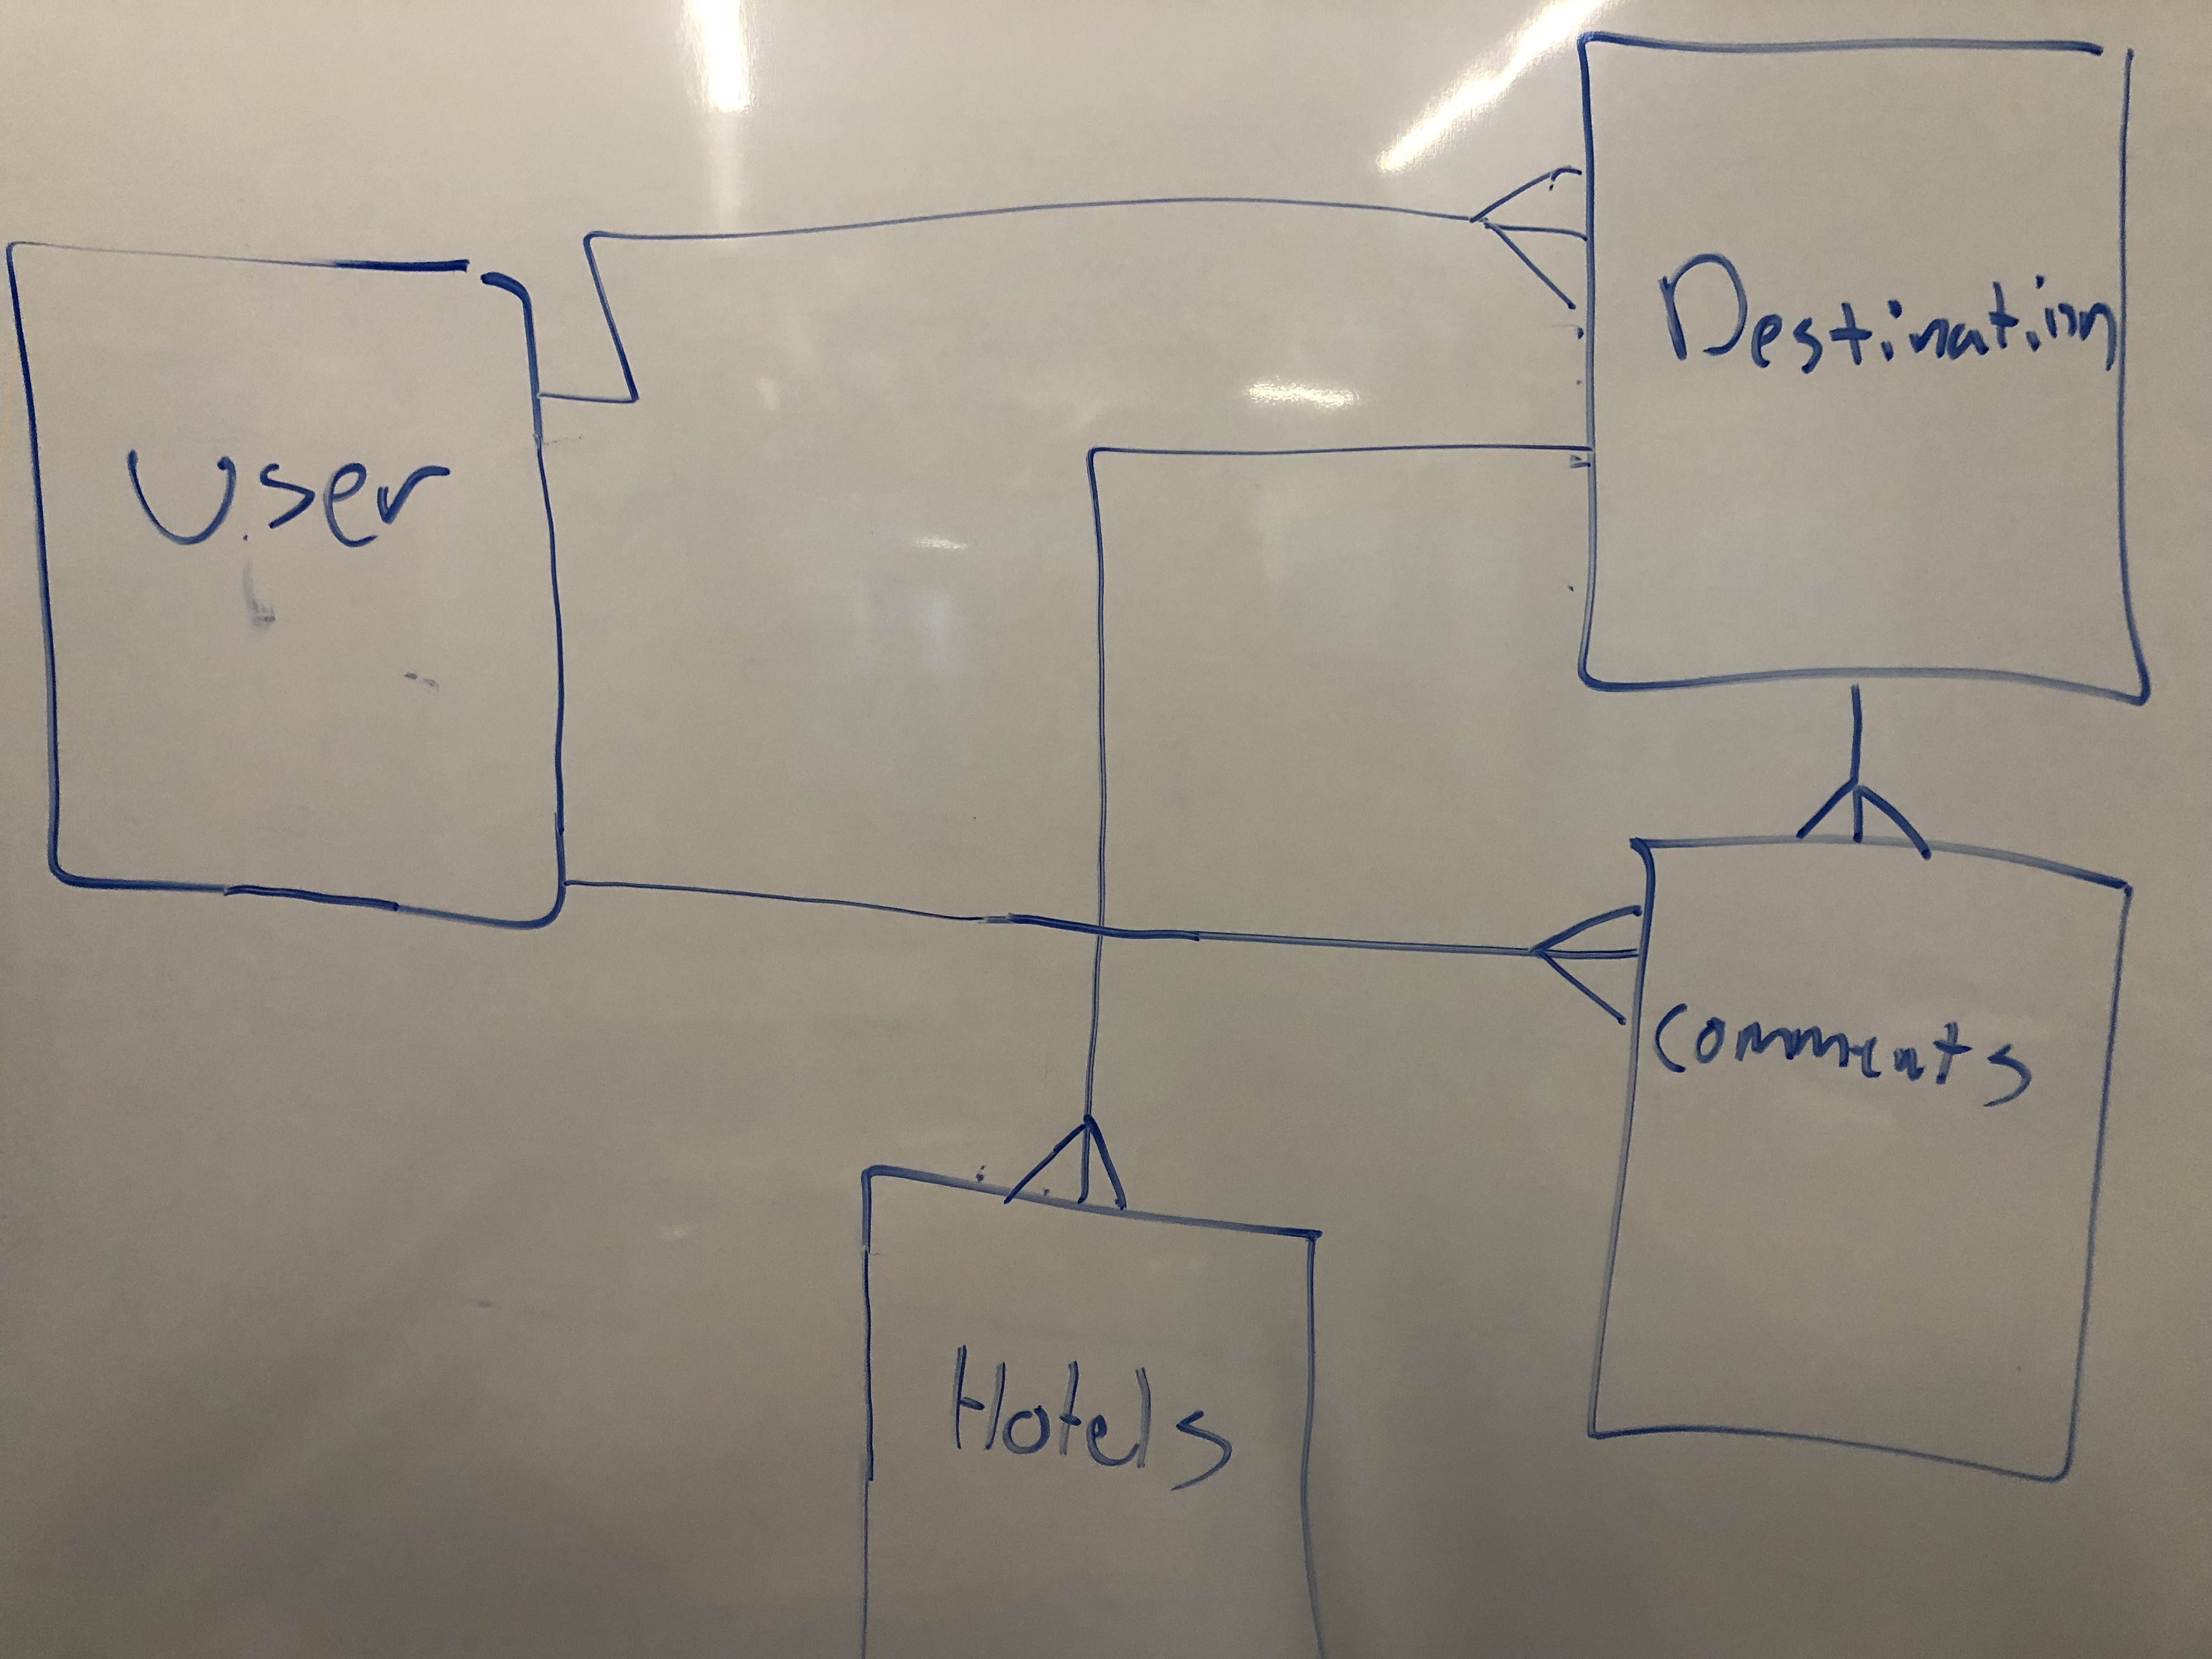 User
Destination
Comments
Hotels